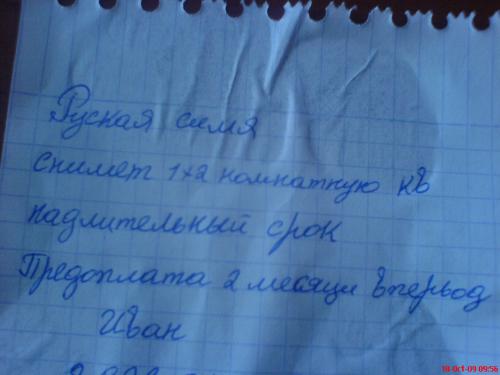 Руская симя
снимет 1×2 комнатную кв
надлительный срок
Предоплата 2 месяци вперьод
Иван
18-Oct-09 09:56